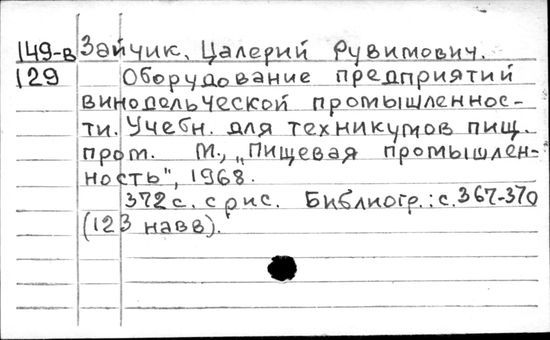 149-в Зайчик, Цалерий Рувимович.
129 Оборудование предприятий
винодельческой промышленнос-
ти. Учебн. для техникумов пищ.
пром. М., „Пищевая промышлен-
ность", 1968.
372 с. с рис. Библиогр.: с. 367-370
(123 назв).